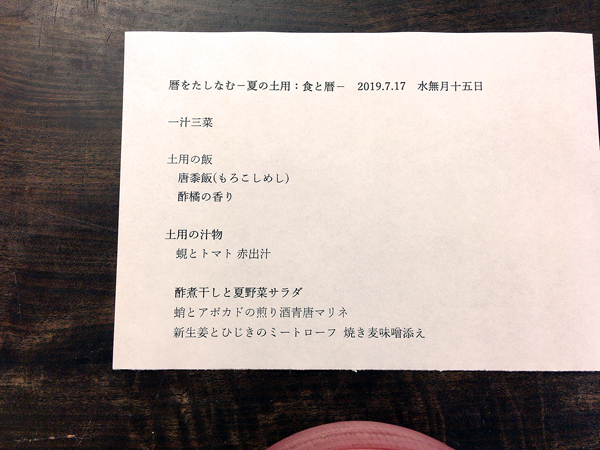 暦をたしなむ－夏の土用：食と暦－　2019.7.17　水無月十五日
一汁三菜
土用の飯
唐黍飯(もろこしめし)
酢橘の香り
土用の汁物
蜆とトマト 赤出汁
酢煮干しと夏野菜サラダ
蛸とアボカドの煎り酒青唐マリネ
新生姜とひじきのミートローフ 焼き麦味噌添え